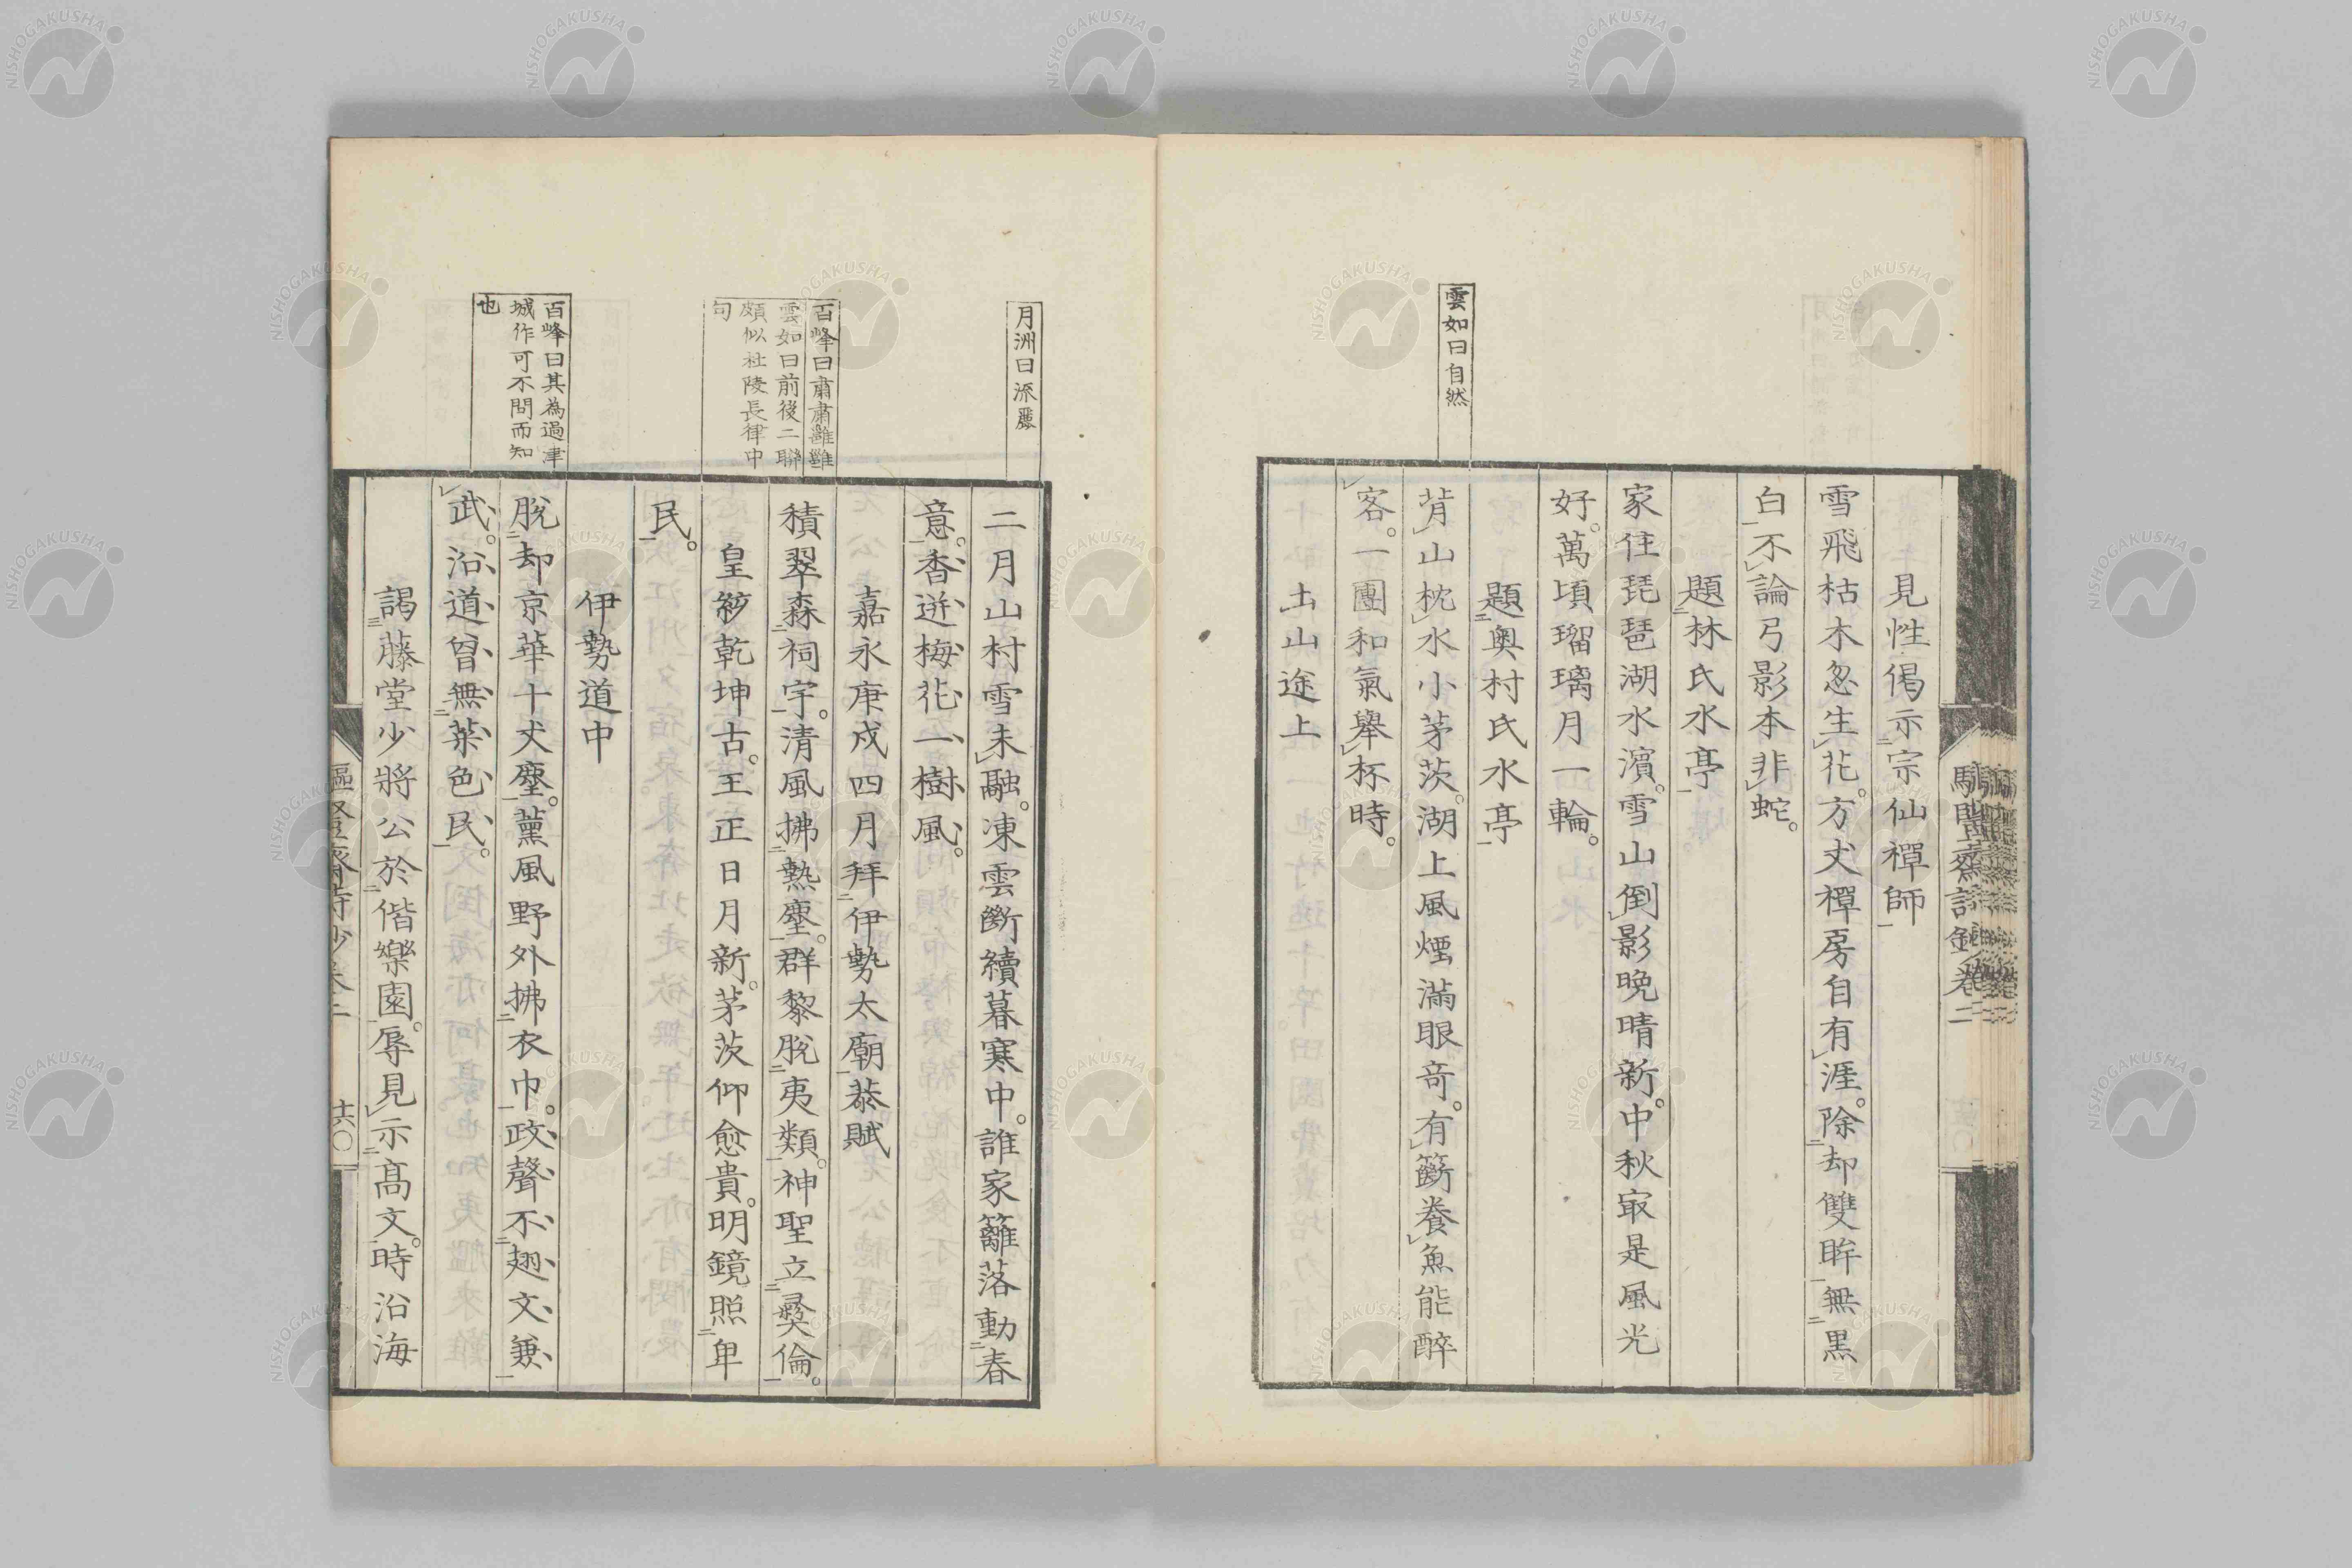 雲如曰自然
見性偈示宗仙禪師
雪飛枯木忽生花。方丈禪房自有涯。除却雙眸無黑
白不論弓影本非蛇。
題林氏水亭
家住琵琶湖水濱。雪山倒影晚晴新。中秋㝡是風光
好。萬頃瑠璃月一輪。
題奥村氏水亭
背山枕水小茅茨。湖上風煙滿眼奇。有籪養魚能醉
客。一團和氣舉杯時。
土山途上
月洲曰流麗
百峰曰肅肅雝雝
雲如曰前後二聯
頗似杜陵長律中
句
百峰曰其為過津
城作可不問而知
也
二月山村雪未融。凍雲斷續暮寒中。誰家籬落動春
意。香迸梅花一樹風。
嘉永庚戌四月拜伊勢太廟恭賦
積翠森祠宇。清風拂熱塵。群黎脫夷類。神聖立彞倫。
皇紗乾坤古。王正日月新。茅茨仰愈貴。明鏡照卑
民。
伊勢道中
脫却京華十丈塵。薰風野外拂衣巾。政聲不翅文兼
武。沿道曾無菜色民。
謁藤堂少將公於偕樂園。辱見示高文。時沿海